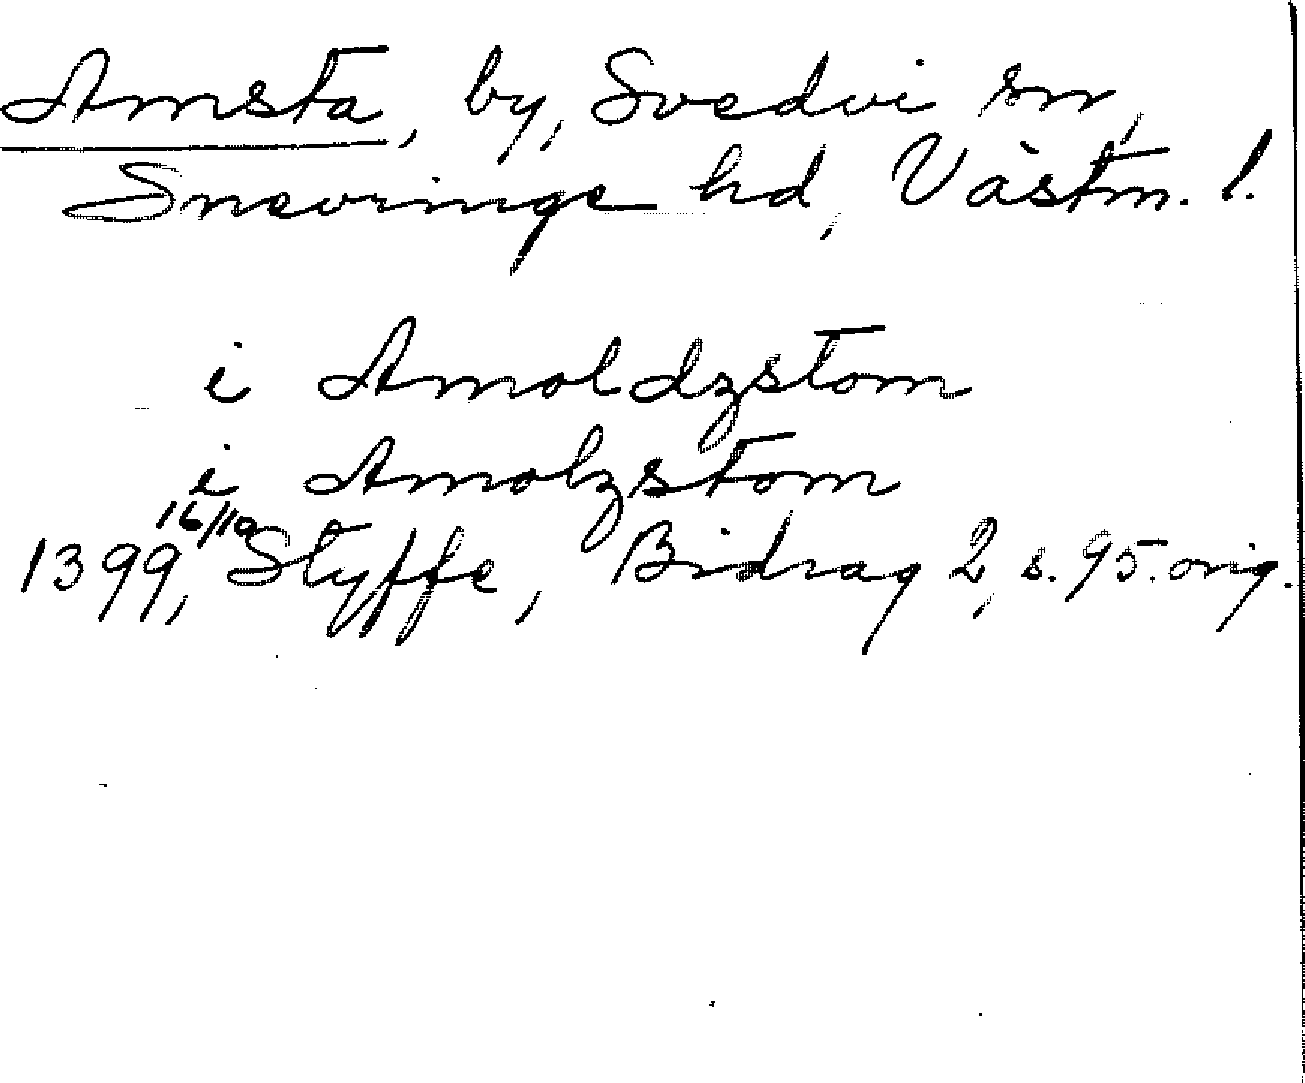 Amsta, by, Svedvi sn,
Snevringe hd, Västm. l.
i Amoldzstom
i Amolzstom
16/10
1399, Styffe, Bidrag 2, s. 95. orig.